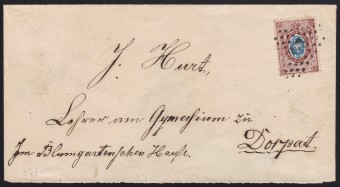 J. Hurt,
Lehrer am Gymnasium zu
Dorpat.
Im Blumgartenschen Hause.